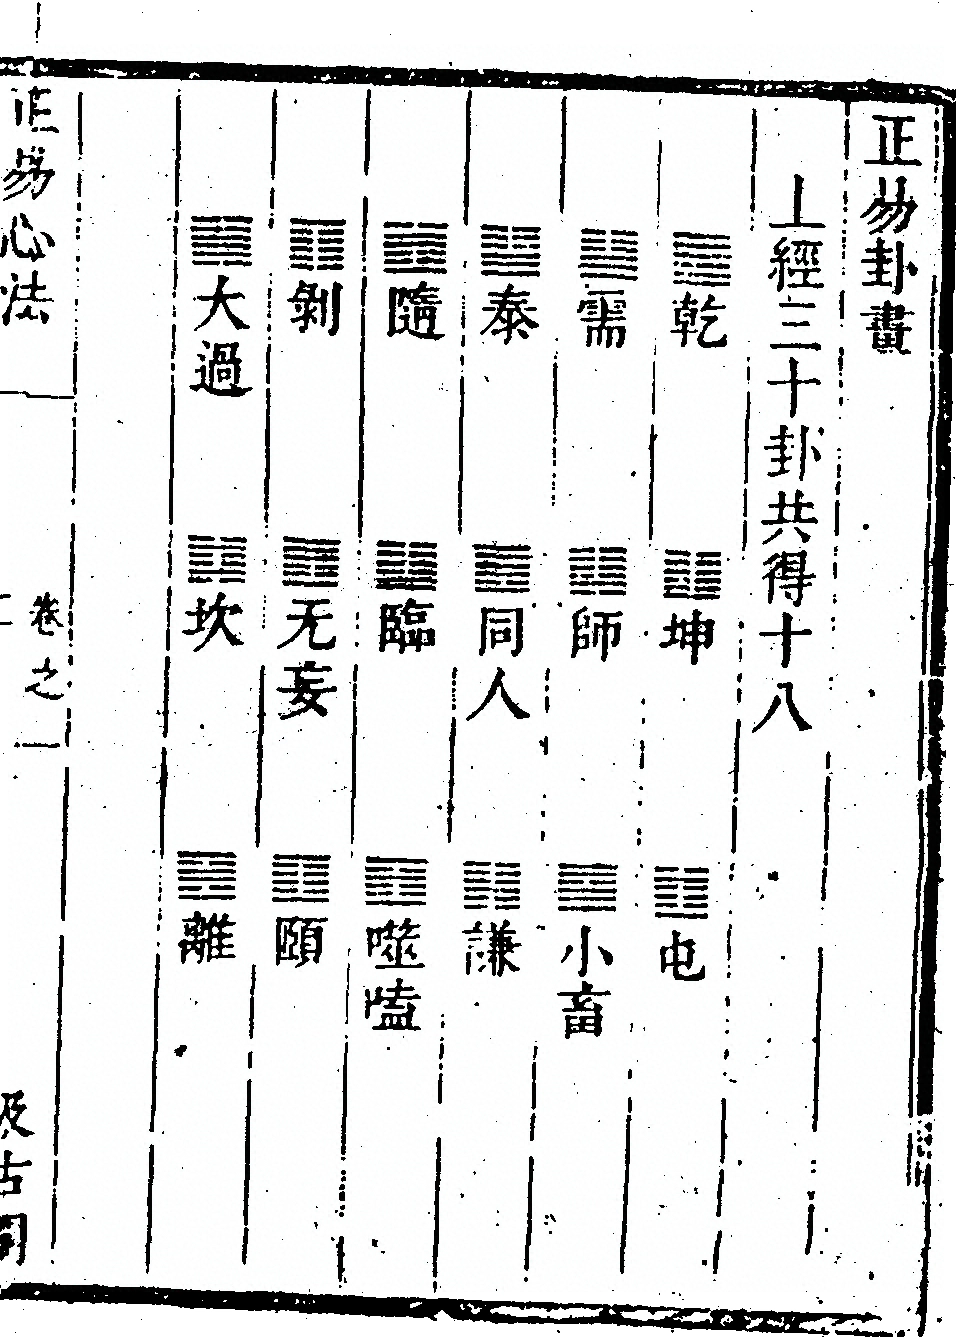 正易卦畫
上經三十卦共得十八
乾 坤 屯
需 師 小畜
泰 同人 謙
隨 臨 噬嗑
剝 无妄 頤
大過 坎 離
正易心法
卷之一
汲古閣